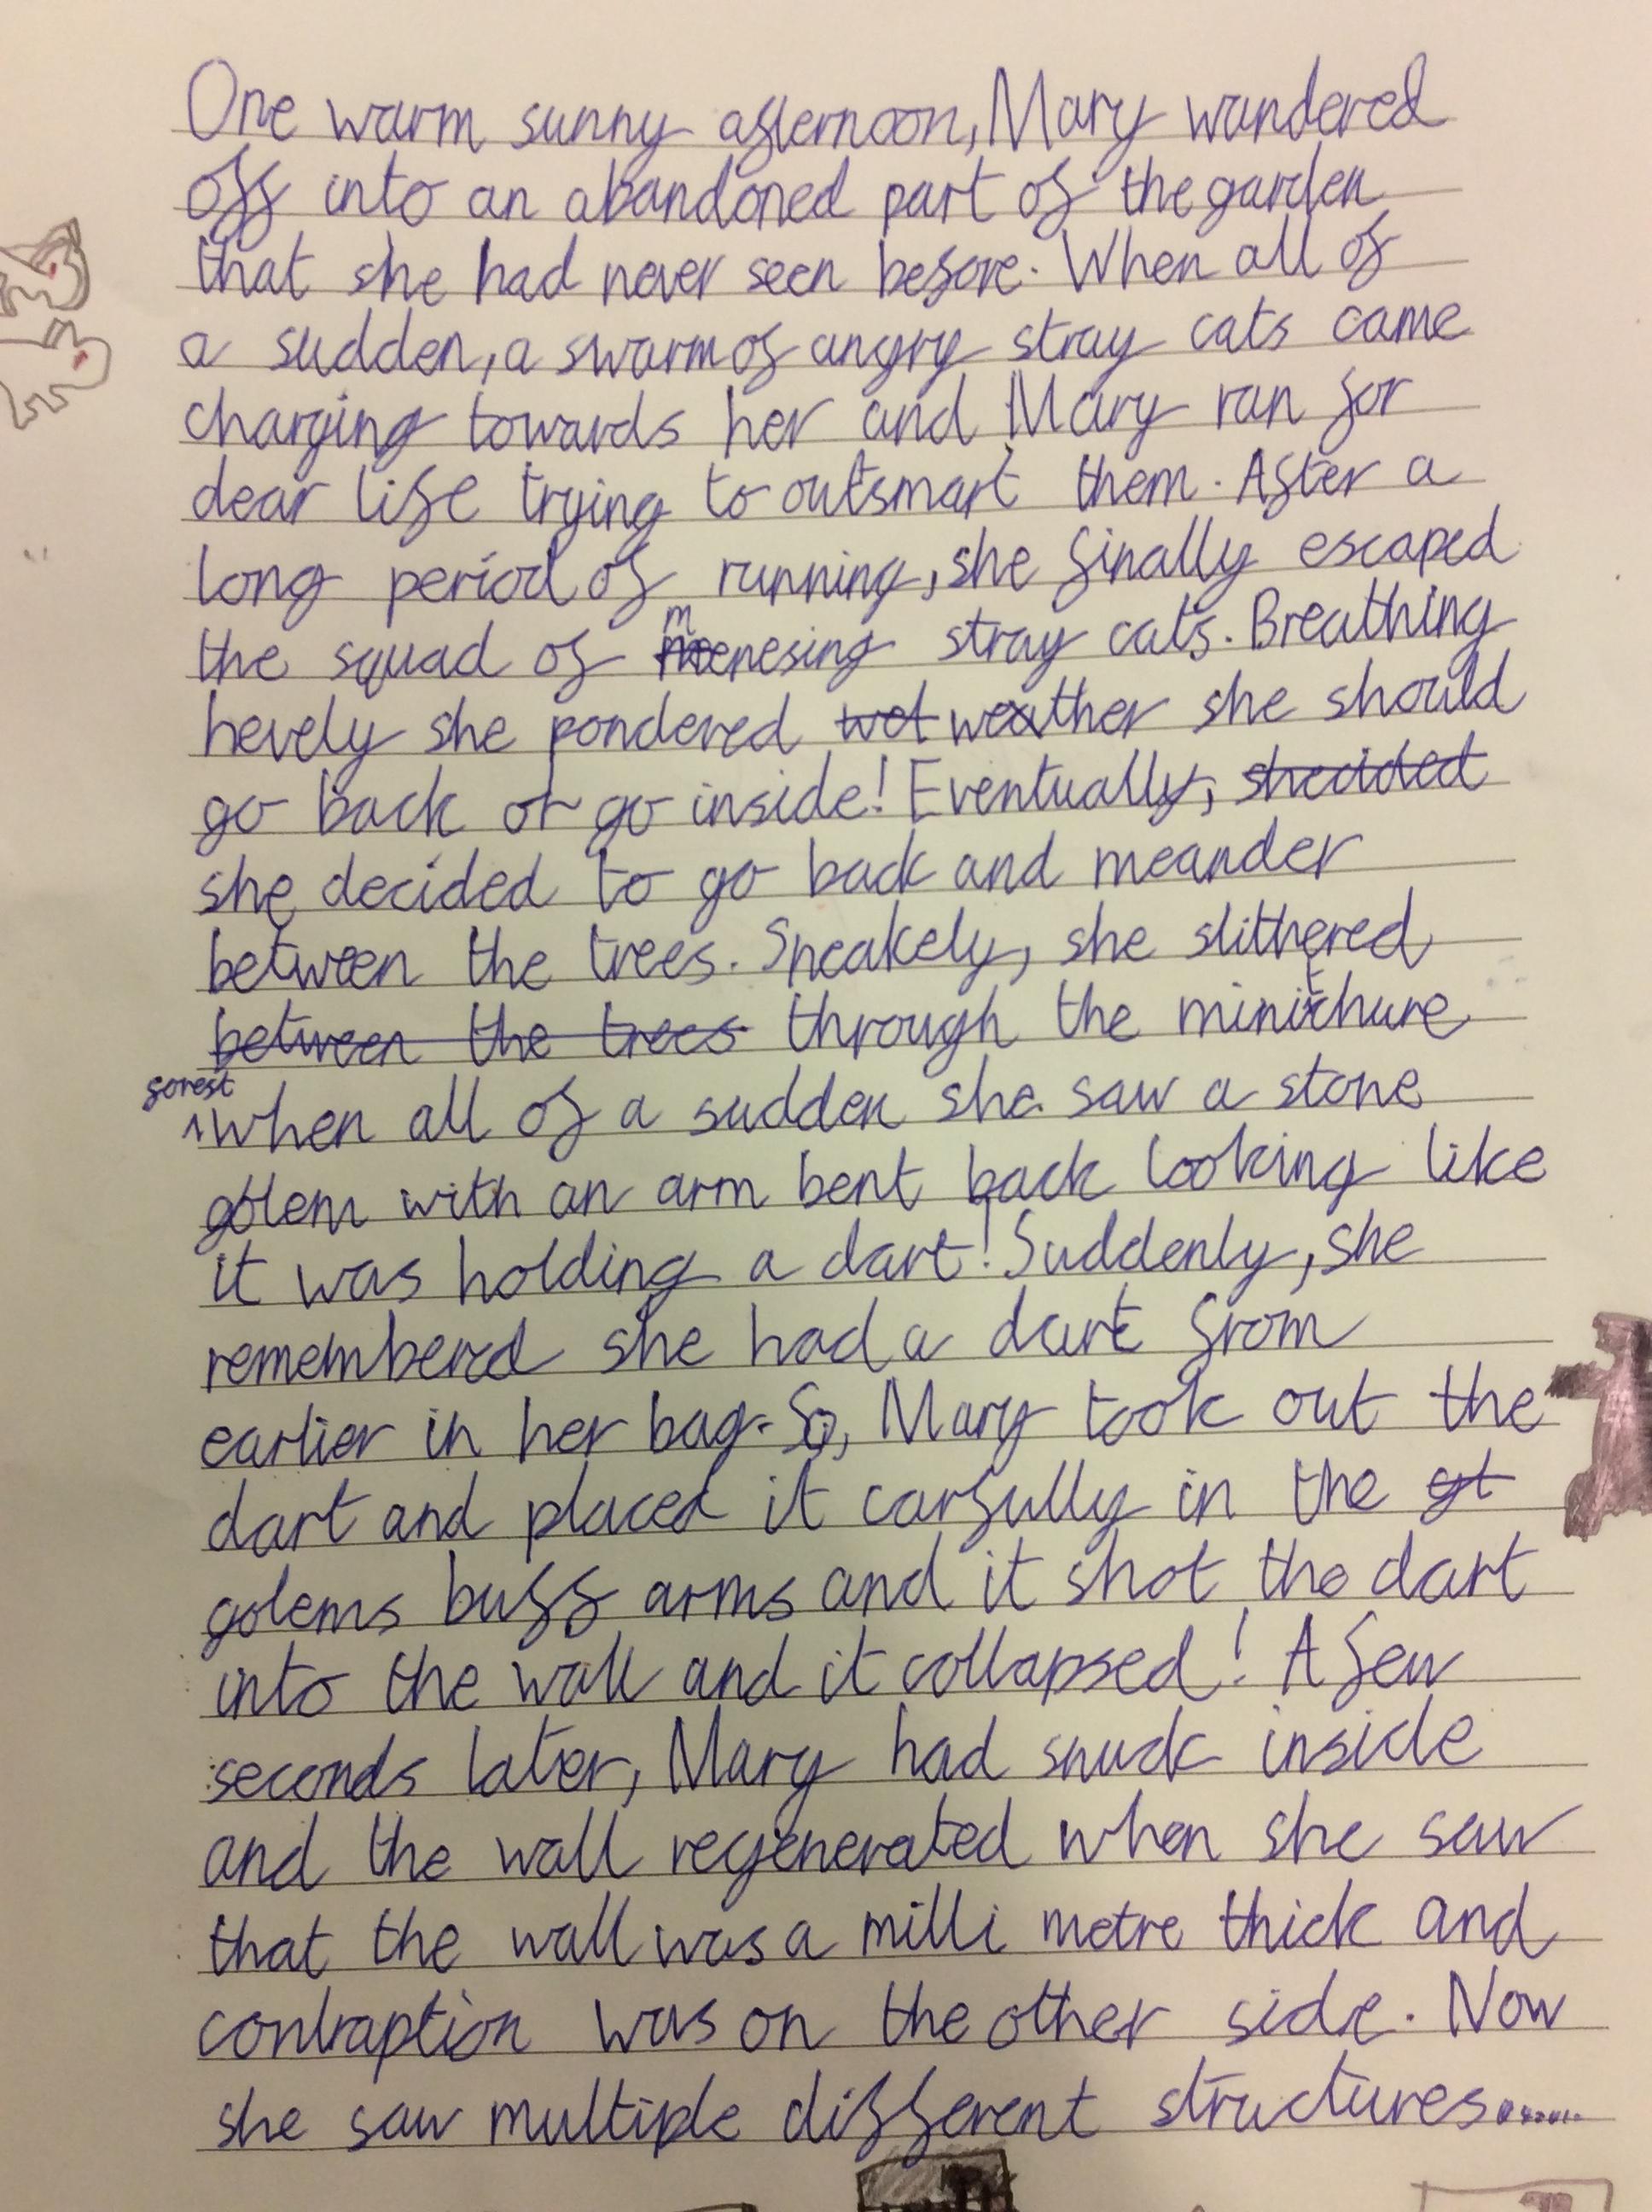 One warm sunny afternoon, Mary wandered
off into an abandoned part of the garden
that she had never seen before. When all of
a sudden, a swarm of angry stray cats came
charging towards her and Mary ran for
dear life trying to outsmart them. After a
long period of running, she finally escaped
the squad of menesing stray cats. Breathing
hevely she pondered wet weather she should
go back or go inside! Eventually, shecided
she decided to go back and meander
between the trees. Sneakely, she slithered
between the trees through the minitchure
forest when all of a sudden she saw a stone
golem with an arm bent back looking like
it was holding a dart! Suddenly, she
remembered she had a dart from
earlier in her bag. So, Mary took out the
dart and placed it carfully in the gt
golems buff arms and it shot the dart
into the wall and it collapsed! A few
seconds later, Mary had snuck inside
and the wall regenerated when she saw
that the wall was a milli metre thick and
contraption was on the other side. Now
she saw multiple different structures......